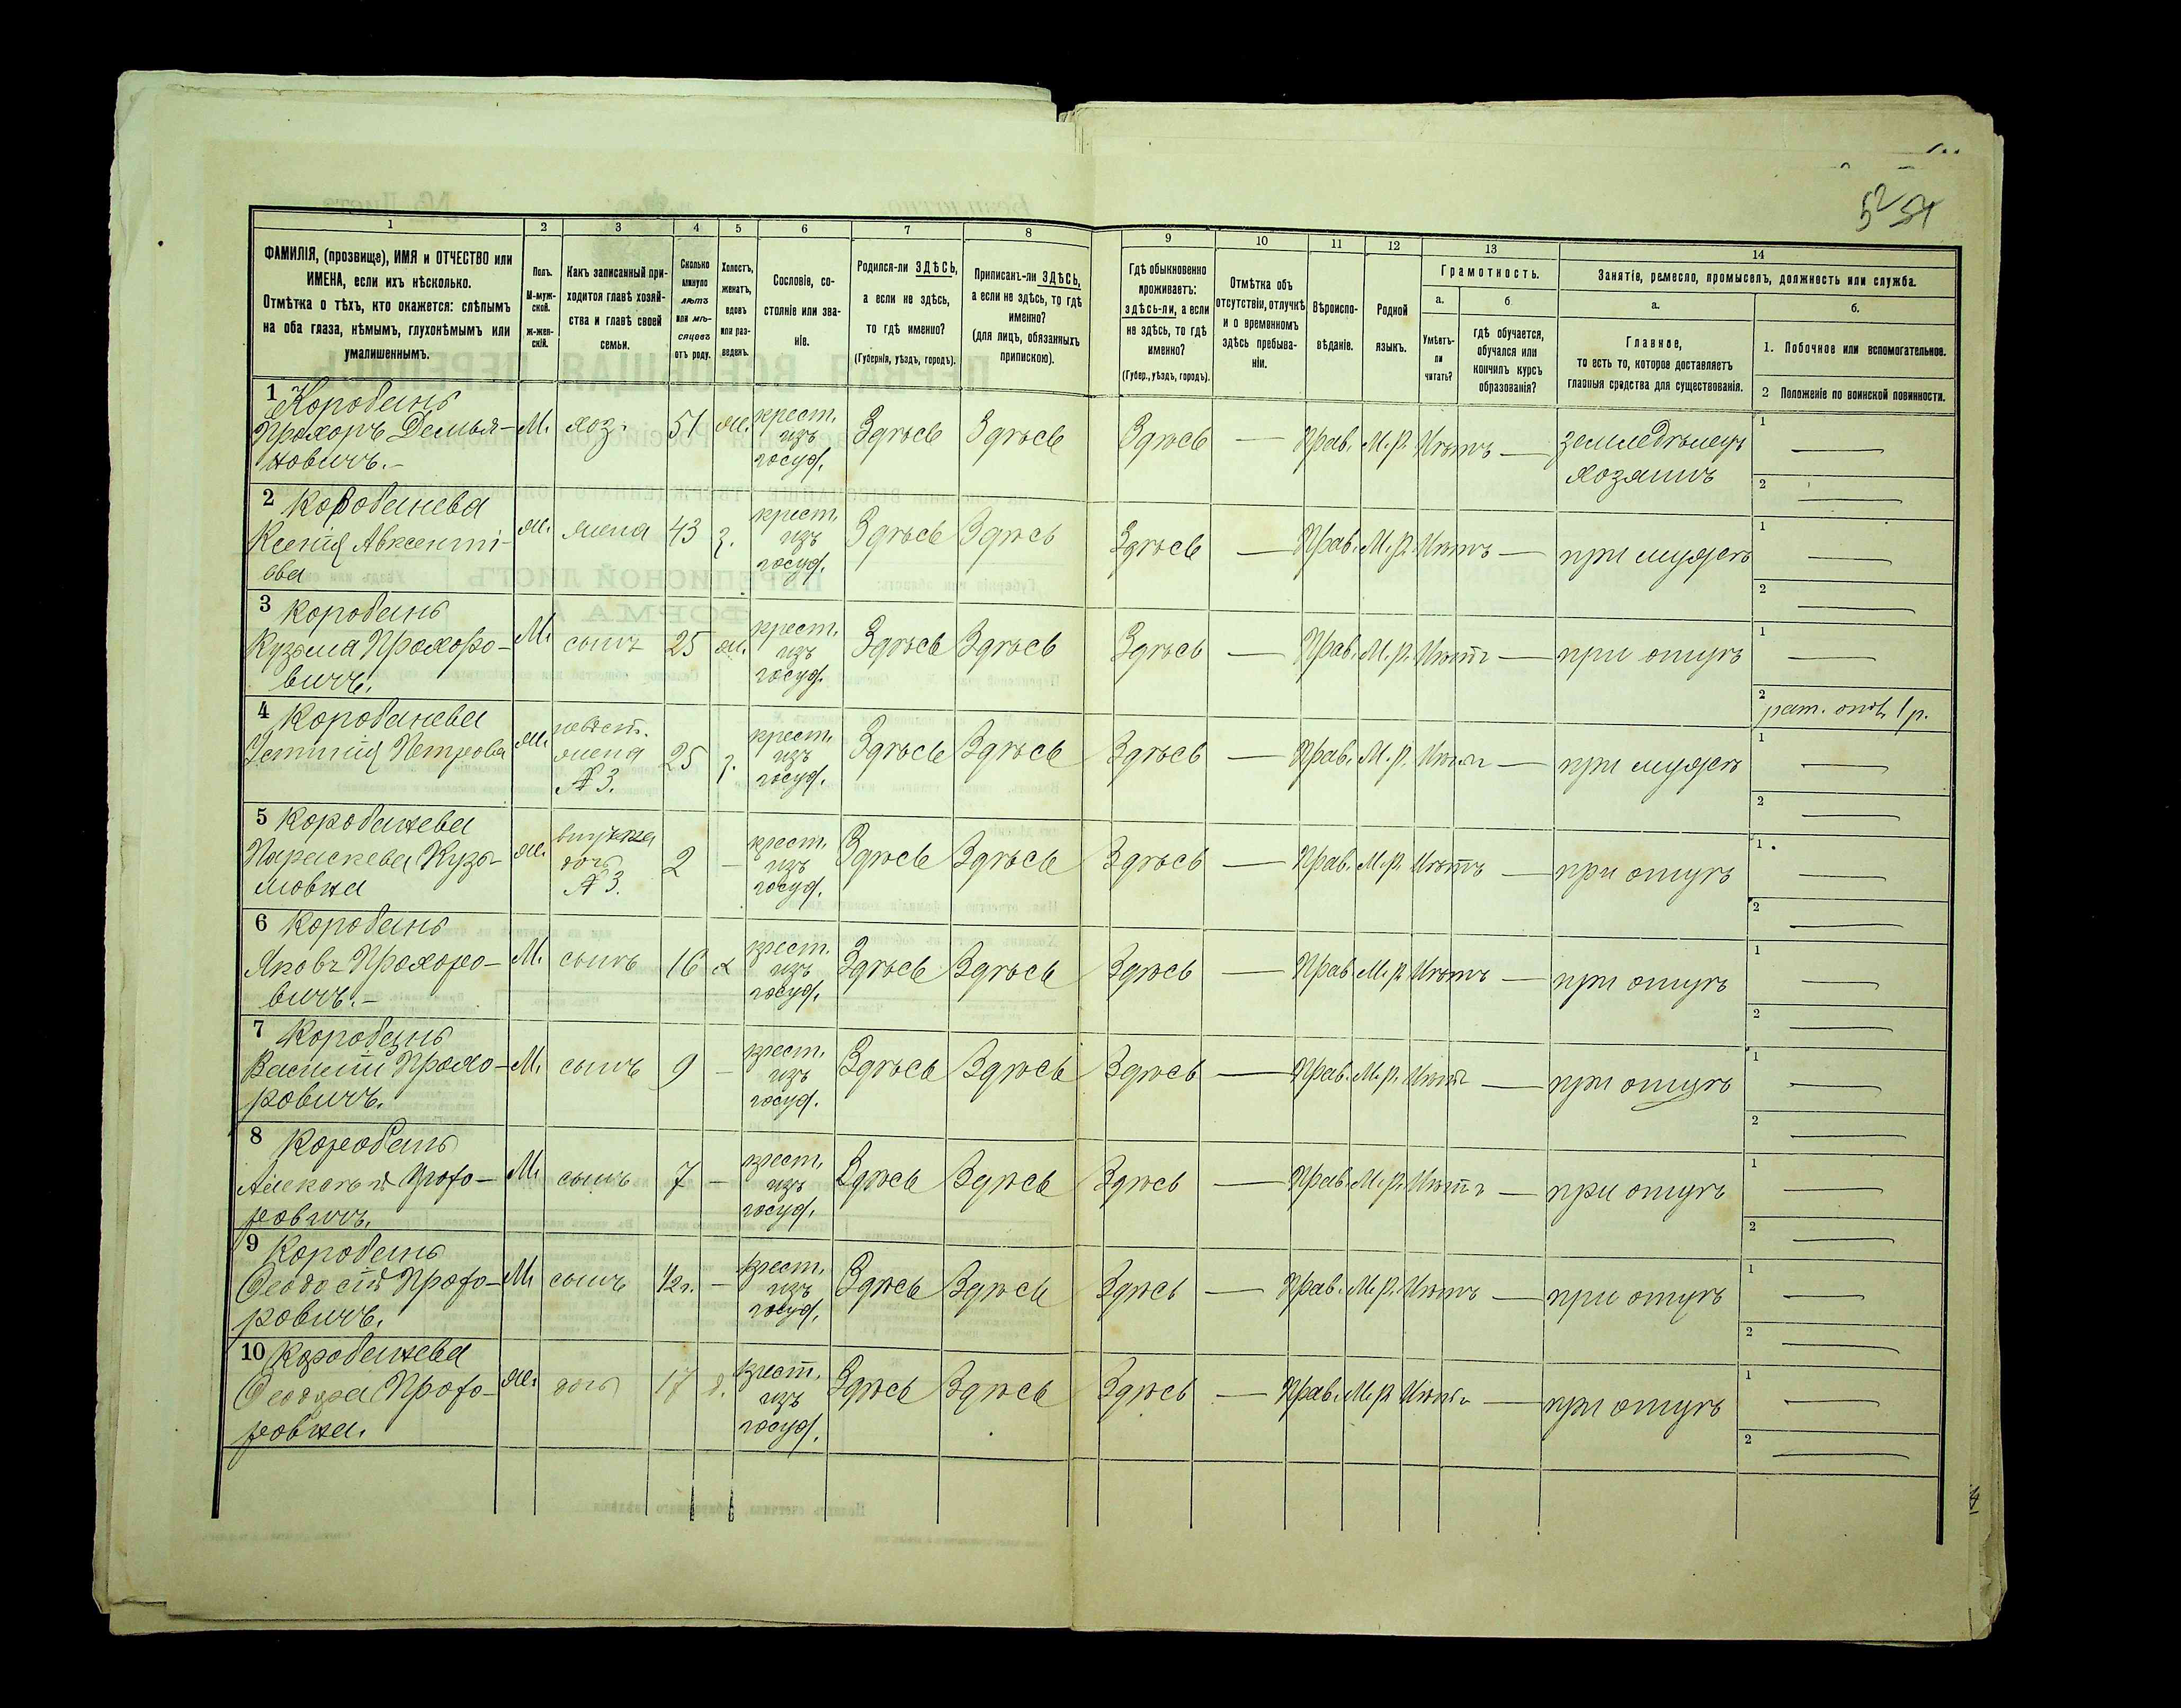 52 54
1
ФАМИЛІЯ, (прозвище), ИМЯ и ОТЧЕСТВО или
ИМЕНА, если ихъ нѣсколько.
Отмѣтка о тѣхъ, кто окажется: слѣпымъ
на оба глаза, нѣмымъ, глухонѣмымъ или
умалишеннымъ.
2
Полъ.
М-муж-
ской.
Ж-жен-
скій.
3
Какъ записанный при-
ходится главѣ хозяй-
ства и главѣ своей
семьи.
4
Сколько
минуло
лѣтъ
или мѣ-
сяцевъ
отъ роду.
5
Холостъ,
женатъ,
вдовъ
или раз-
веденъ.
6
Сословіе, со-
стояніе или зва-
ніе.
7
Родился-ли ЗДѢСЬ,
а если не здѣсь,
то гдѣ именно?
(Губернія, уѣздъ, городъ).
8
Приписанъ-ли ЗДѢСЬ,
а если не здѣсь, то гдѣ
именно?
(для лицъ, обязанныхъ
припискою).
9
Гдѣ обыкновенно
проживаетъ:
здѣсь-ли, а если
не здѣсь, то гдѣ
именно?
(Губер., уѣздъ, городъ).
10
Отмѣтка объ
отсутствіи, отлучкѣ
и о временномъ
здѣсь пребыва-
ніи.
11
Вѣроиспо-
вѣданіе.
12
Родной
языкъ.
13
Грамотность.
а.
Умѣетъ-
ли
читать?
б.
гдѣ обучается,
обучался или
кончилъ курсъ
образованія?
14
Занятіе, ремесло, промыселъ, должность или служба.
а.
Главное,
то есть то, которое доставляетъ
главныя средства для существованія.
б.
1. Побочное или вспомогательное.
2 Положеніе по воинской повинности.
1 Коробань
Прохоръ Демья-
новичъ.-
М. хоз. 51 ж. крест.
изъ
госуд.
Здѣсь Здѣсь Здѣсь — Прав. М.р. Нѣтъ — земледѣлецъ
хозяинъ
1 —
2 —
2 Коробанева
Ксенія Авксенті-
ева
ж. жена 43 з. крест.
изъ
госуд.
Здѣсь Здѣсь Здѣсь — Прав. М.р. Нѣтъ — при мужѣ
1 —
2 —
3 Коробань
Кузьма Прохоро-
вичъ.
М. сынъ 25 ж. крест.
изъ
госуд.
Здѣсь Здѣсь Здѣсь — Прав. М.р. Нѣтъ — при отцѣ
1 —
2 рат. опол. 1 р.
4 Коробанева
Устинія Петрова
ж. невѣст.
жена
№ 3.
25 з. крест.
изъ
госуд.
Здѣсь Здѣсь Здѣсь — Прав. М.р. Нѣтъ — при мужѣ
1 —
2 —
5 Коробанева
Параскева Кузь-
мовна
ж. внучка
дочь
№ 3.
2 — крест.
изъ
госуд.
Здѣсь Здѣсь Здѣсь — Прав. М.р. Нѣтъ — при отцѣ
1 —
2 —
6 Коробань
Яковъ Прохоро-
вичъ.-
М. сынъ 16 х крест.
изъ
госуд.
Здѣсь Здѣсь Здѣсь — Прав. М.р. Нѣтъ — при отцѣ
1 —
2 —
7 Коробань
Василій Прохо-
ровичъ.
М. сынъ 9 — крест.
изъ
госуд.
Здѣсь Здѣсь Здѣсь — Прав. М.р. Нѣтъ — при отцѣ
1 —
2 —
8 Коробань
Алексѣй Прохо-
ровичъ.
М. сынъ 7 — крест.
изъ
госуд.
Здѣсь Здѣсь Здѣсь — Прав. М.р. Нѣтъ — при отцѣ
1 —
2 —
9 Коробань
Феодосій Прохо-
ровичъ.
М. сынъ 1/2 г. — крест.
изъ
госуд.
Здѣсь Здѣсь Здѣсь — Прав. М.р. Нѣтъ — при отцѣ
1 —
2 —
10 Коробанева
Феодора Прохо-
ровна.
ж. дочь 17 д. крест.
изъ
госуд.
Здѣсь Здѣсь Здѣсь — Прав. М.р. Нѣтъ — при отцѣ
1 —
2 —